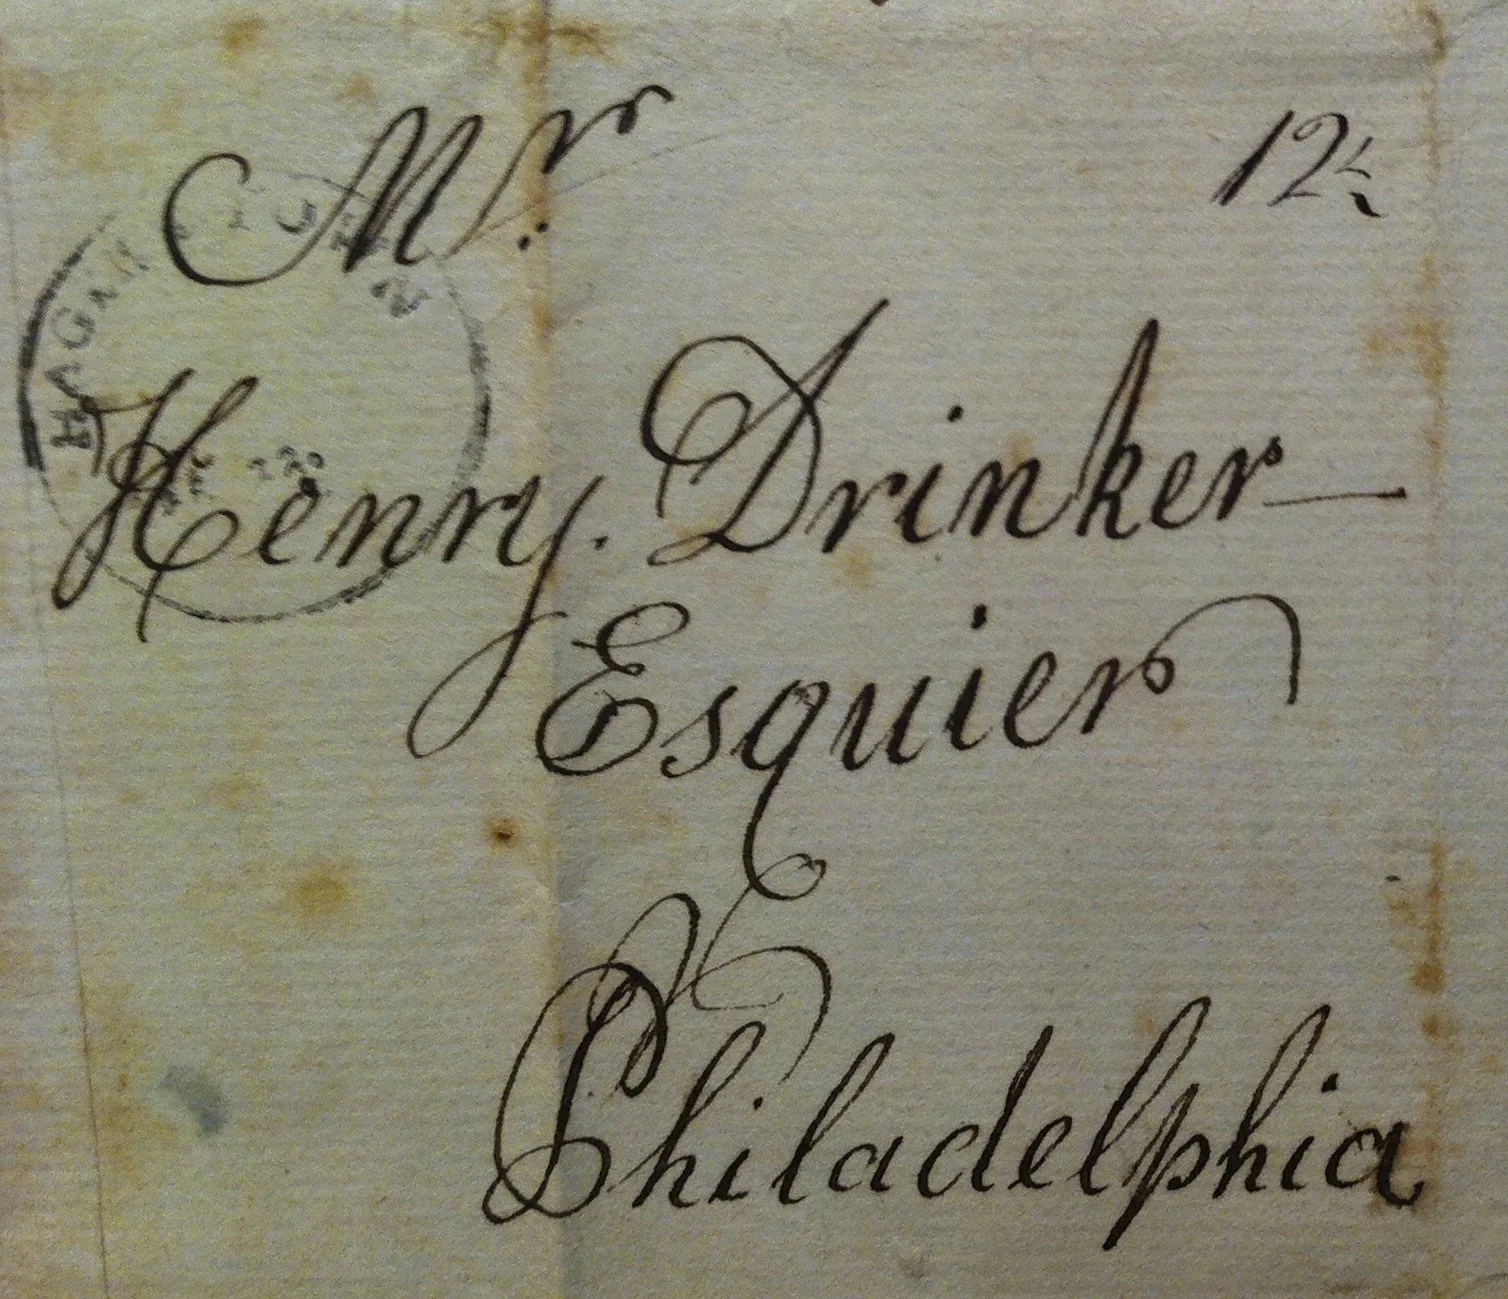 Mr.
12½
Henry. Drinker
Esquier
Philadelphia